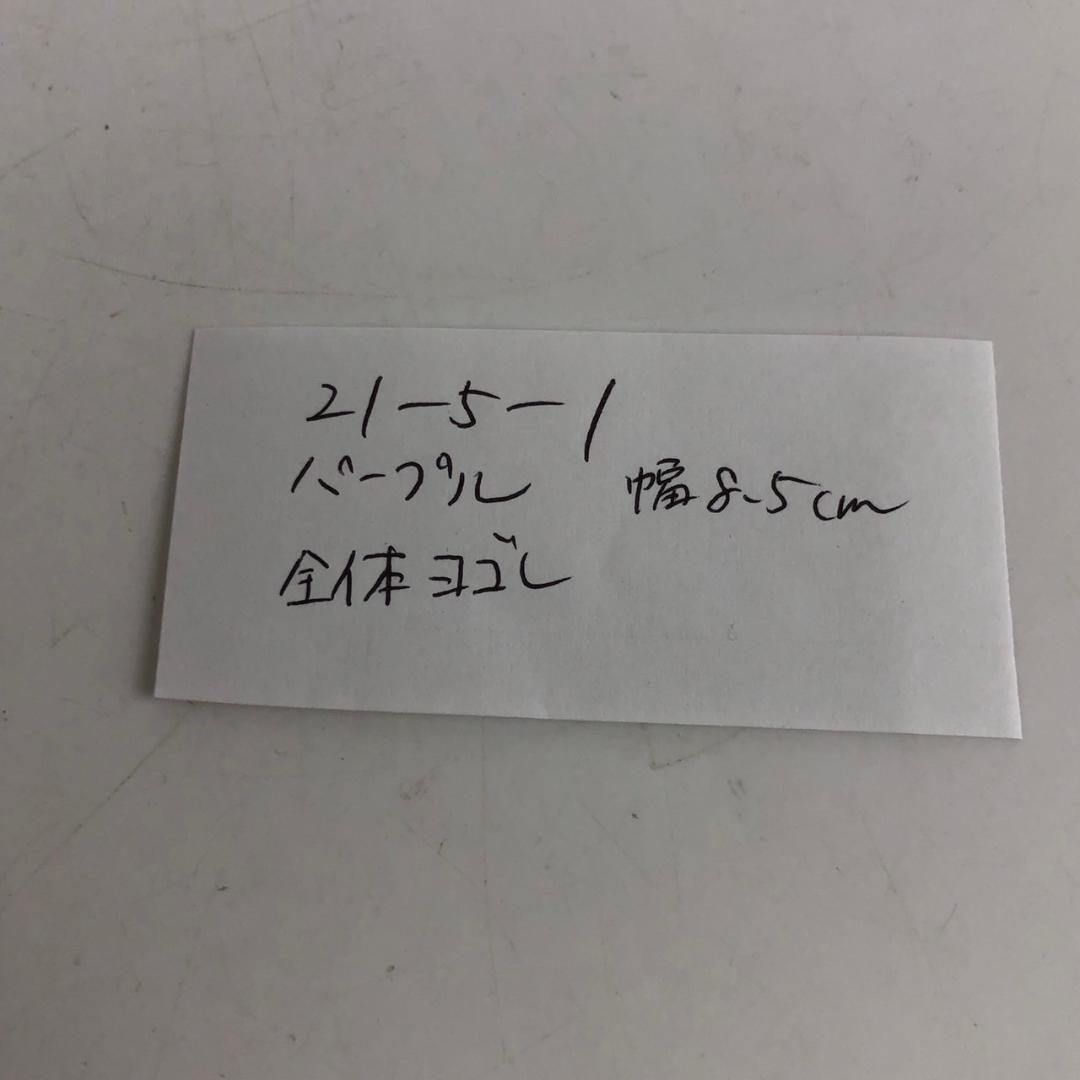 21-5-1
パープル 幅8.5cm
全体ヨゴレ